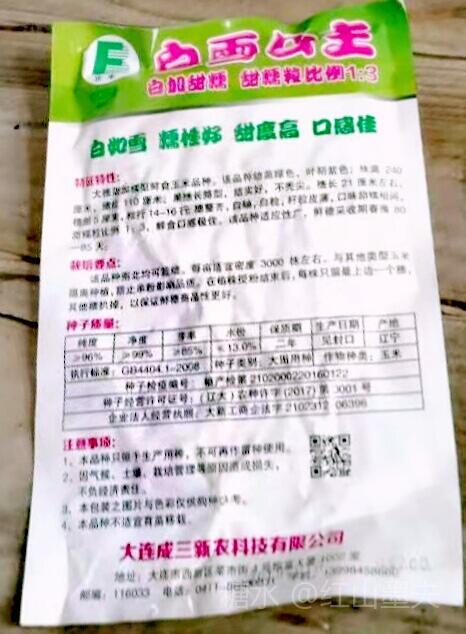 白雪公主
白加甜糯 甜糯粒比例1:3
白如雪 糯性好 甜度高 口感佳
特征特性：
大穗甜加糯型鲜食玉米品种。该品种幼苗绿色，叶鞘紫色；株高 240
厘米，穗位 110 厘米；果穗长筒型，结实好，不秃尖。穗长 21 厘米左右，
穗粗 5 厘米，粒行 14-16行 穗整齐，白轴，白粒，籽粒皮薄，口味甜糯相间，
甜糯粒比例 1：3，鲜食口感极佳。该品种适应性广，鲜穗采收期春播 80
—85 天。
栽培要点：
该品种南北均可栽培。每亩适宜密度 3000 株左右。与其他类型玉米
隔离种植，防止串粉影响品质。在植株授粉结束后，每株只留最上边一个穗，
其他穗扒掉，以保证鲜穗商品性更好。
种子质量：
纯度 净度 芽率 水份 保质期 生产日期 产地
≥96% ≥99% ≥85% ≤13.0% 二年 见封口 辽宁
执行标准：GB4404.1-2008 种子类别：大田用种 作物种类：玉米
种子检疫编号：辅产检第 2102000220160122
种子经营许可证号：（辽大）农种许字（2017）第 3001 号
企业法人经营执照：大新工商企法字 2102312 06396
注意事项：
1、本品种只限于生产用种，不可再作留种使用。
2、因气候、土壤、栽培管理等原因造成损失，
不负经济责任。
3、本包装之图片与色彩仅供购种参考。
4、本品种不适宜育苗移栽。
大连成三新农科技有限公司
地址：大连市西岗区
邮编：116033 电话：0411-
糖水 @红山